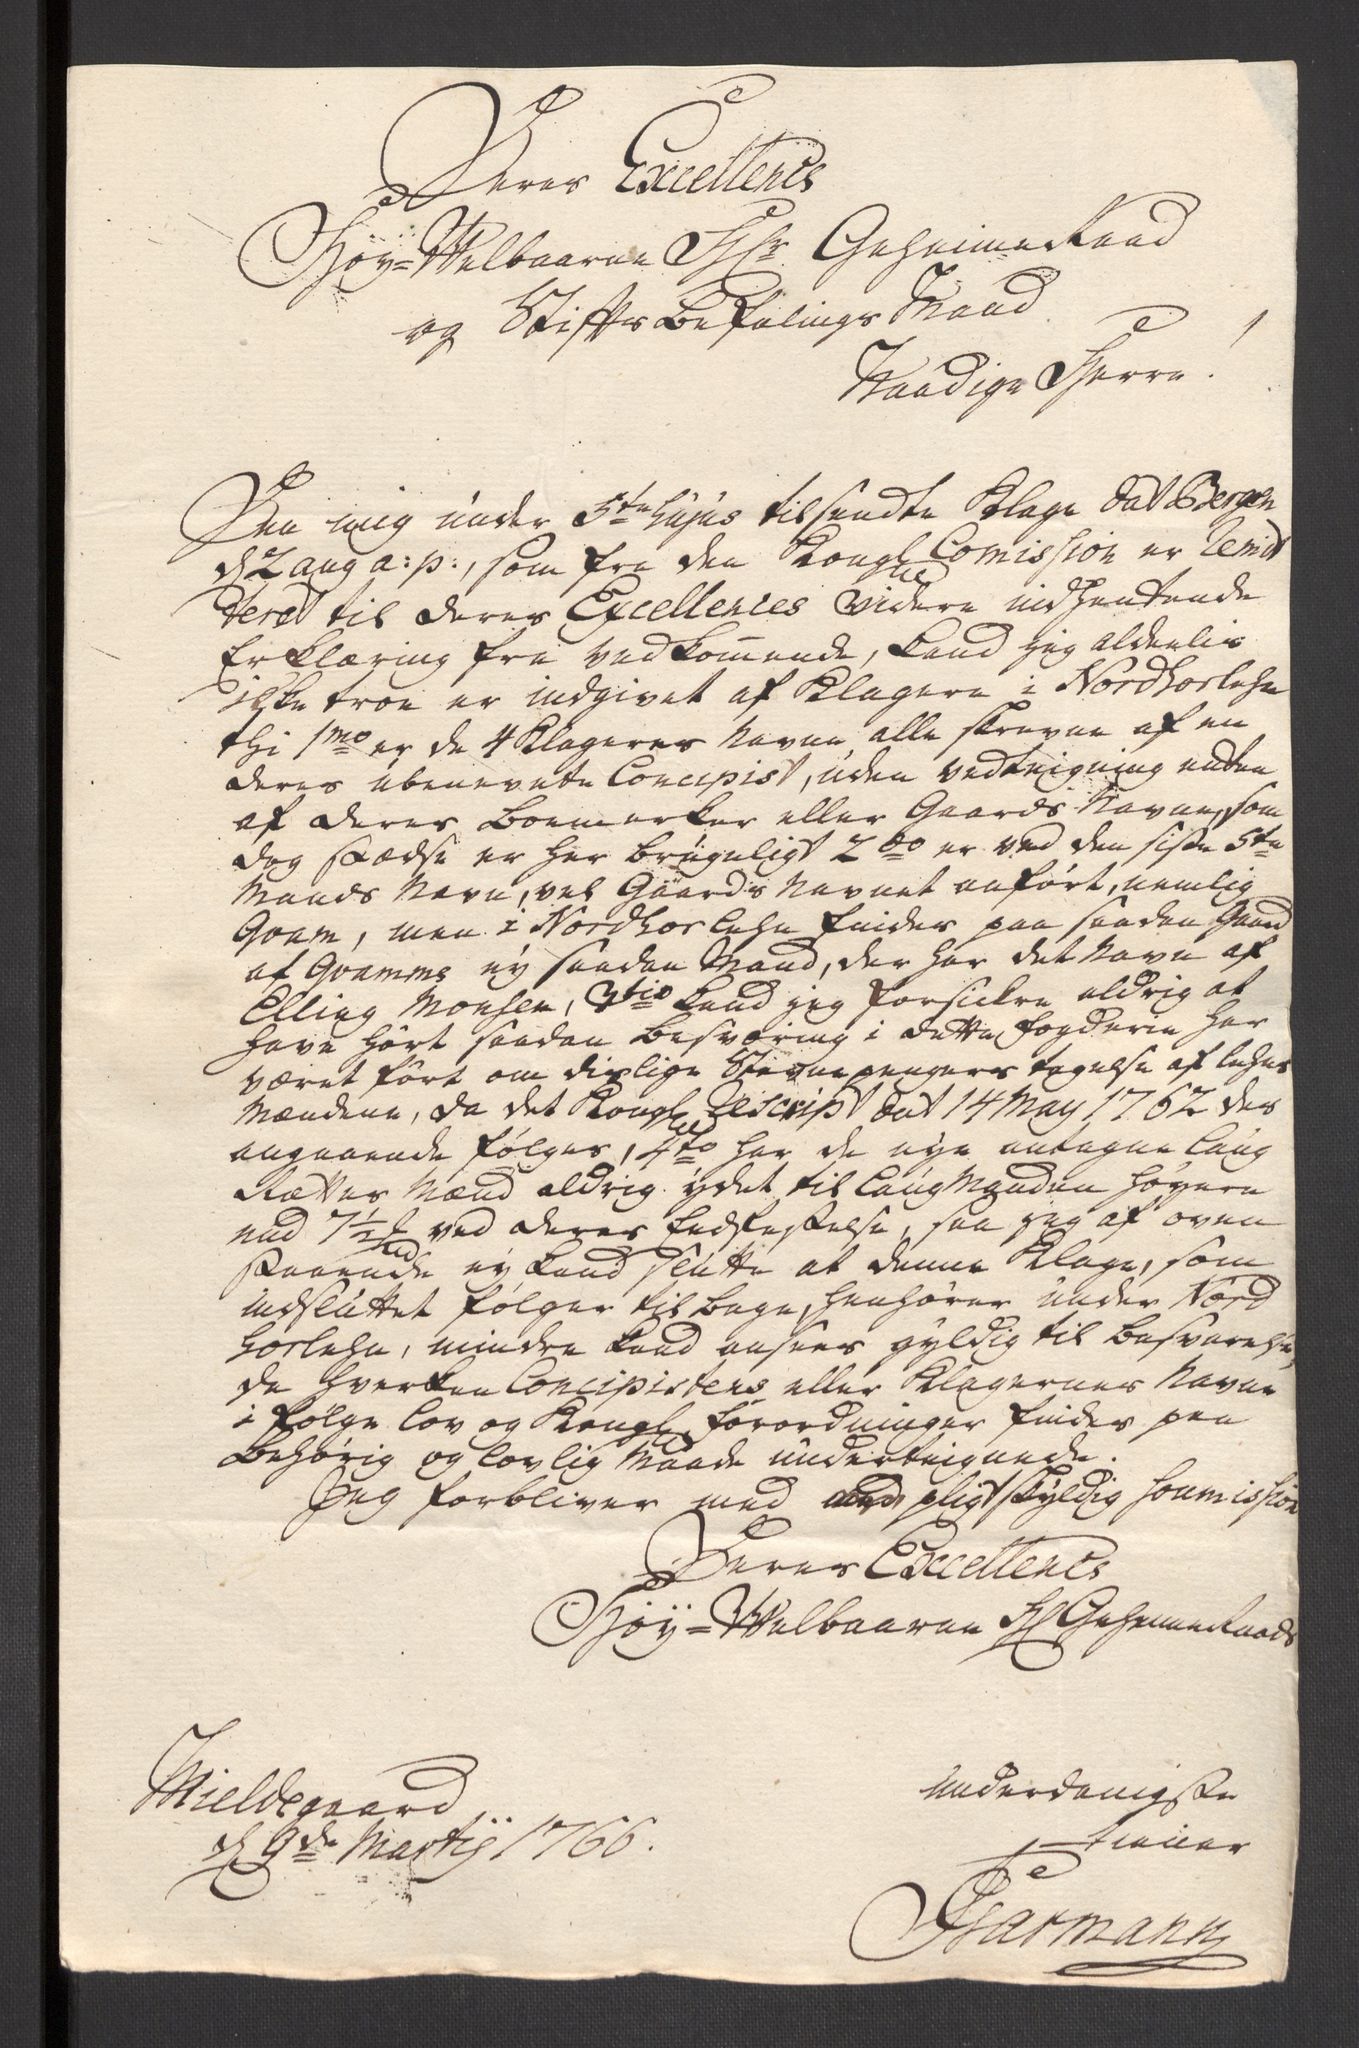 Deres Excellence
Høy-Welbaarne Hr Geheime Raad
og Stiftsbefalings Mand
Naadige Herre!
Den mig under 5te hujus tilsendte Klage dat Bergen
d 2 aug a: p:, som fra den Kongl Comission er remit
teret til Deres Excellences videre indhentende
Erklæring fra vedkommende, kand jeg aldeelis
ikke troe er indgivet af Klagere i Nordhorlehn
thi 1mo er de 4 Klageres Navne alle skrevne af en
deres ubenevnte Concipist, uden vedteigning enten
af deres Boemerker eller Gaards Navne, som
dog stædse er her brugeligt 2do er ved den siste 5te
Mands Navn, vel Gaards Navnet anført, nemlig
Qvam, men i Nordhorlehn findes paa saadan Gaard
af Qvamme ey saadan Mand, der har det Navn af
Elling Monsen, 3tio kand jeg forsickre aldrig at
have hørt saadan besværing i dette fogderie har
været ført om dislige Stevnepengers tagelse af lehns
Mændene, da det Kongl Rescript dat 14 May 1762 des
angaaende følges, 4to har de nye antagne Laug
Rettes Mænd aldrig ydet til Laugmanden høyere
end 7½ ved deres Eedfestelse, saa jeg af oven
staaende ey kand slutte at denne Klage, som
indsluttet følger tilbage, henhører under Nord
horlehn, mindre kand ansees gyldig til besvarelse,
da hverken Concipistens eller Klagernes Navne
i følge lov og Kongl forordninger findes paa
behørig og lovlig Maade underteignede.
Jeg forbliver med pligtskyldig soumission
Deres Excellence
Høy-Welbaarne Hr Geheime Raads
Mieldegaard
d 9de Martij 1766.
underdanigste
tiener
Garmann